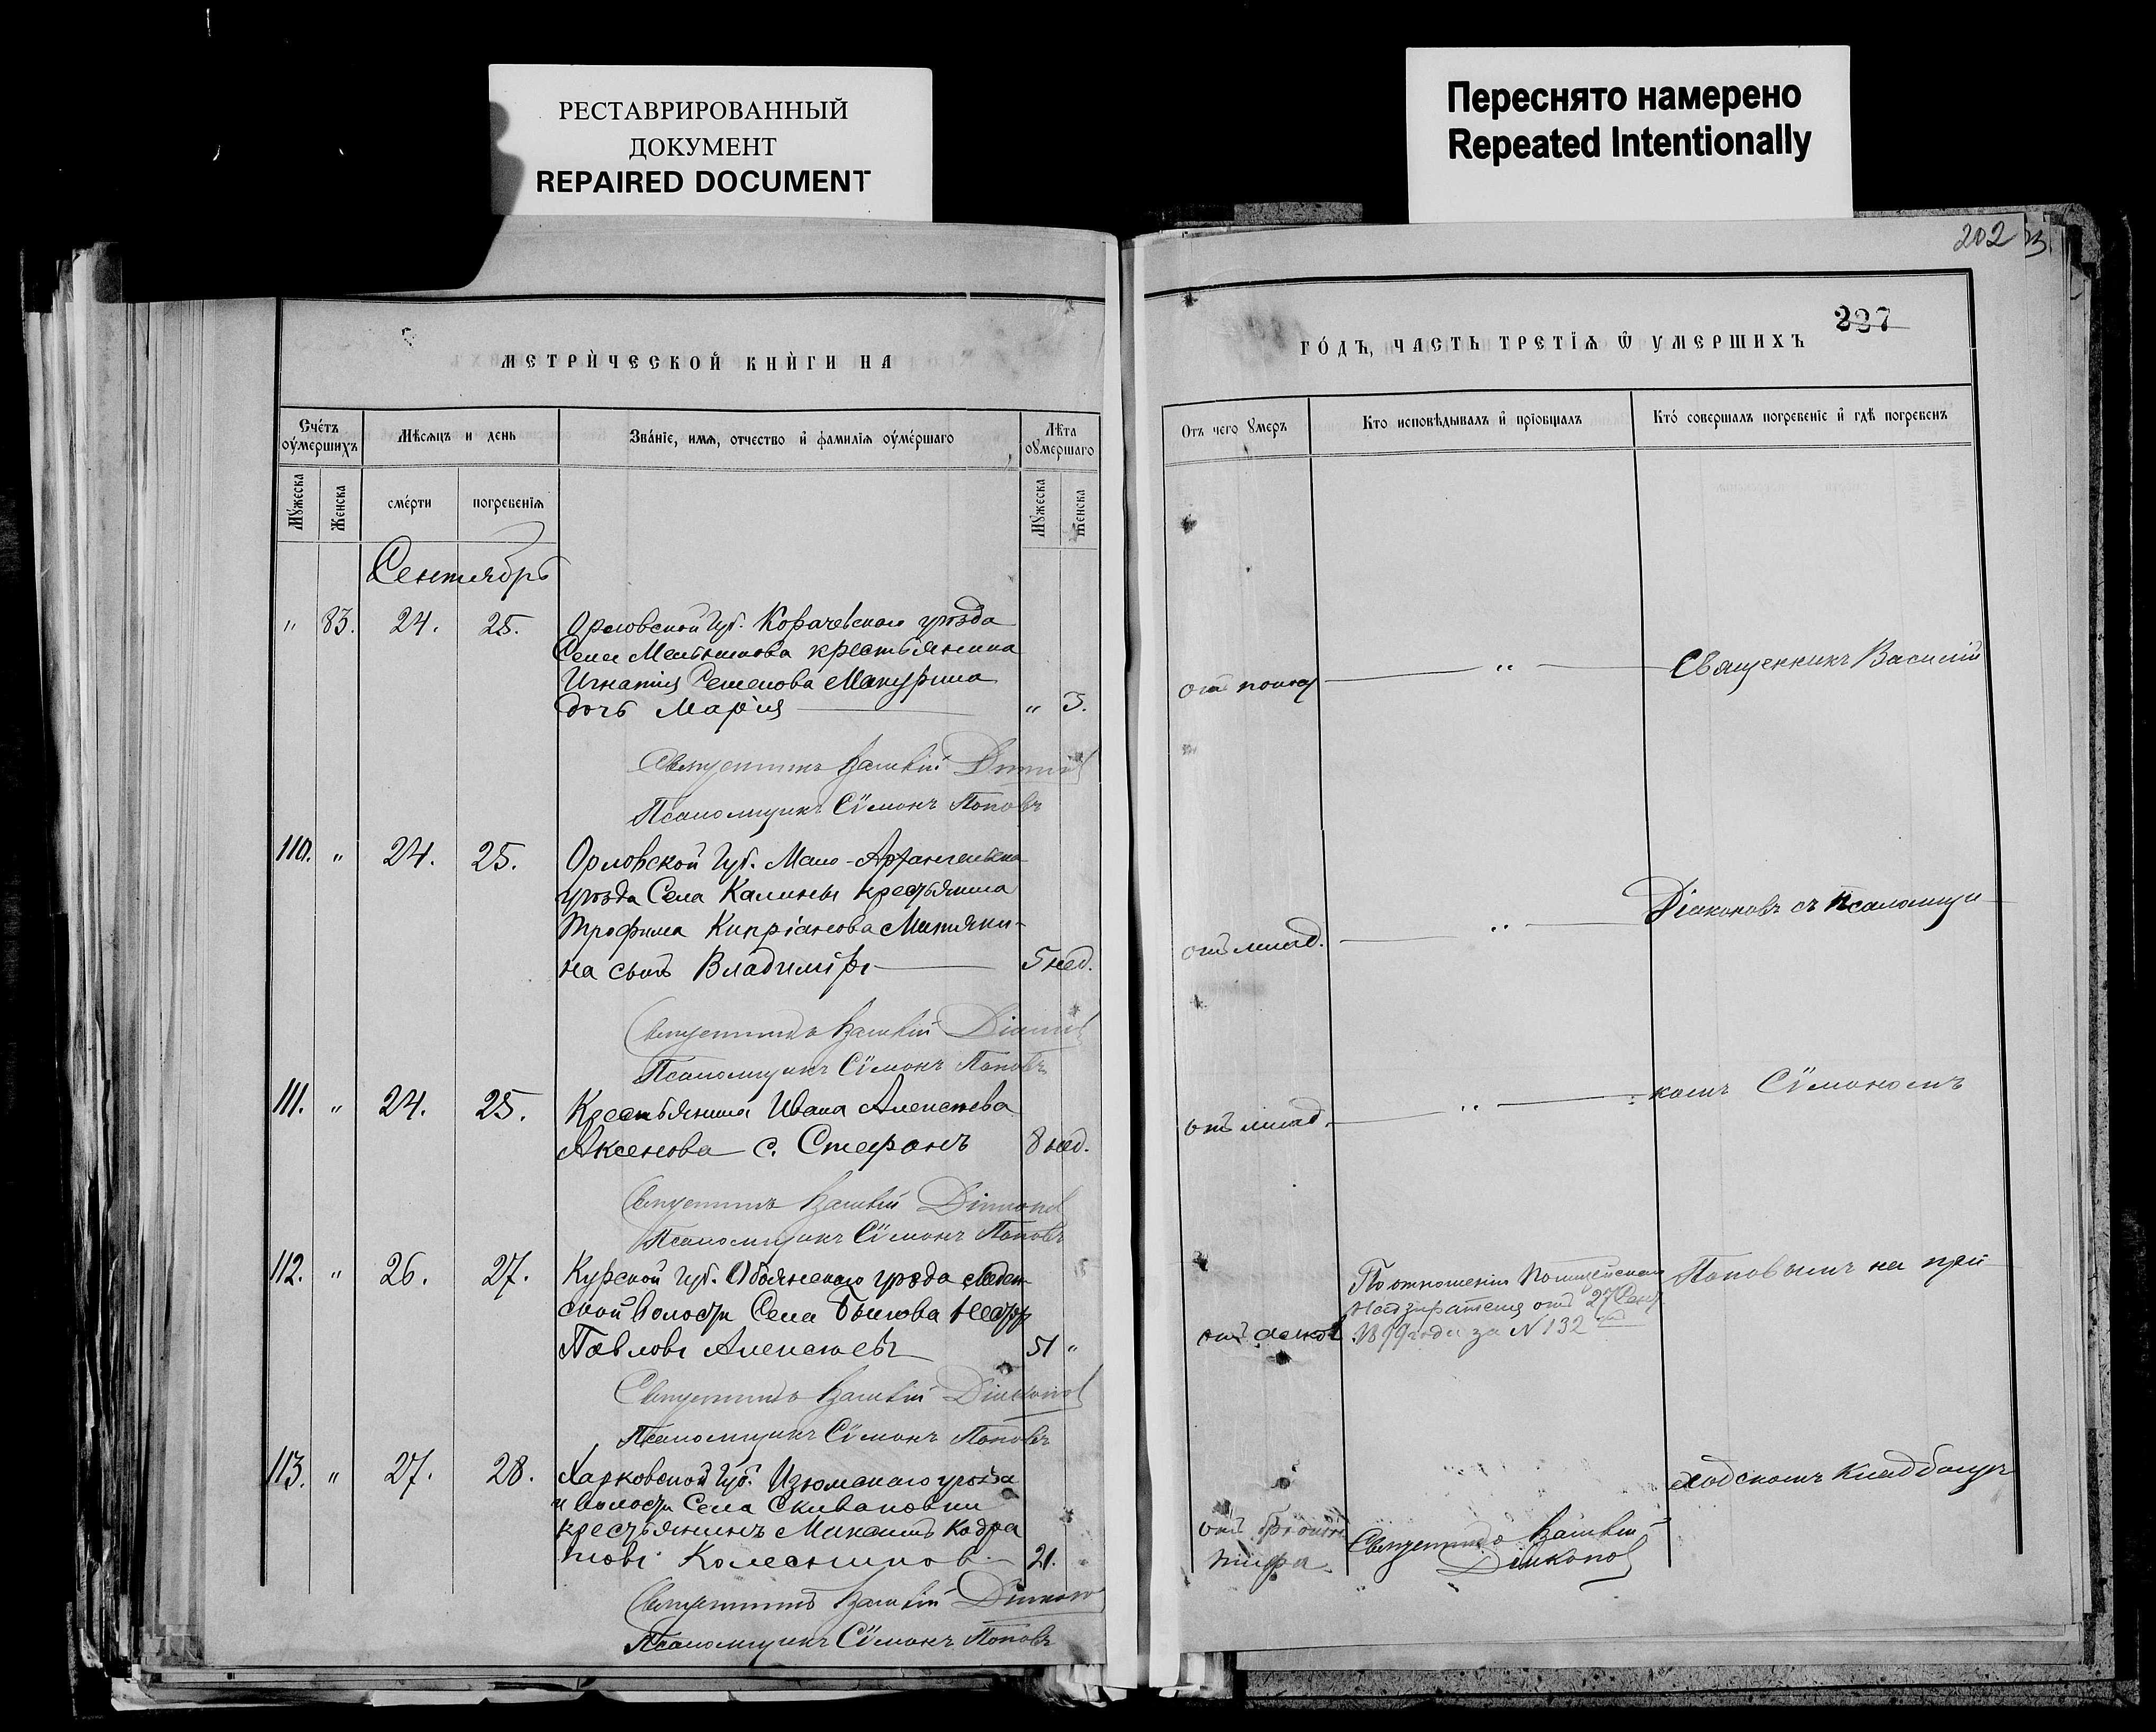 РЕСТАВРИРОВАННЫЙ
ДОКУМЕНТ
REPAIRED DOCUMENT
Переснято намерено
Repeated Intentionally
202
237
МЕТРИ́ЧЕСКОЙ КНИ́ГИ НА
Сче́тъ оу҆ме́ршихъ
Мѣсяцъ и день
Зва́нїе, имѧ, отчество и҆ фамилїѧ оу҆ме́ршаго
Лѣта оу҆ме́ршаго
Мꙋжеска
Женска
сме́рти
погребенїѧ
Мꙋжеска
Женска
Сентябрь
" 83. 24. 25. Орловской Губ. Корачевскаго уѣзда
Села Мельникова крестьянина
Игнатія Семенова
дочь Марія " 3.
Священникъ Василій
Псаломщикъ Сїмонъ Поповъ
110. " 24. 25. Орловской Губ. Мало-Архангельска
уѣзда Села Калины крестьянина
Трофима Кипріанова Митяки-
на сынъ Владиміръ 5 нед.
Священникъ Василій
Псаломщикъ Сїмонъ Поповъ
111. " 24. 25. Крестьянина Ивана Алексѣева
Аксенова с. Стефанъ 8 нед.
Священникъ Василій
Псаломщикъ Сїмонъ Поповъ
112. " 26. 27. Курской Губ. Обоянскаго уѣзда
ской волости Села Быкова
Павловъ Алексѣевъ 51 "
Священникъ Василій
Псаломщикъ Сїмонъ Поповъ
113. " 27. 28. Харковской Губ. Изюмскаго уѣзда
и волости Села
крестьянинъ Михаилъ Кодра
товъ Колесниковъ 21.
Священникъ Василій
Псаломщикъ Сїмонъ Поповъ
ГО́ДЪ, ЧАСТЬ ТРЕТЇѦ Ѿ УМЕРШИХЪ
Отъ чего ꙋмеръ
Кто исповѣдывалъ и҆ прїобщалъ
Кто́ совершалъ погребенїе и҆ гдѣ погребенъ
отъ поноса " Священникъ Василій
отъ млад. " Діаконовъ съ псаломщи
отъ млад. " комъ Сїмономъ
По отношенію Полицейскаго
Надзирателя отъ 27 Сент.
за N 132
Поповымъ на
отъ
Священникъ Василій
Діаконовъ
кладбищѣ